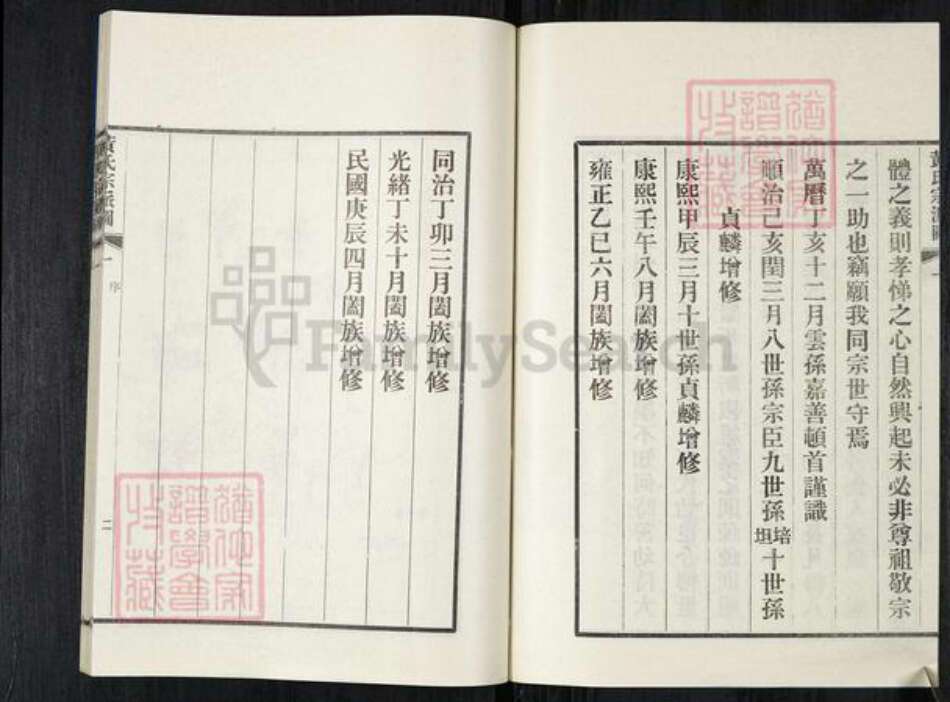 體之義則孝悌之心自然興起未必非尊祖敬宗
之一助也竊願我同宗世守焉
萬曆丁亥十二月雲孫嘉善頓首謹識
順治己亥閏三月八世孫宗臣九世孫培坦十世孫
貞麟增修
康熙甲辰三月十世孫貞麟增修
康熙壬午八月闔族增修
雍正乙巳六月闔族增修
同治丁卯三月闔族增修
光緒丁未十月闔族增修
民國庚辰四月闔族增修
黃氏宗派圖
序
二
FamilySearch